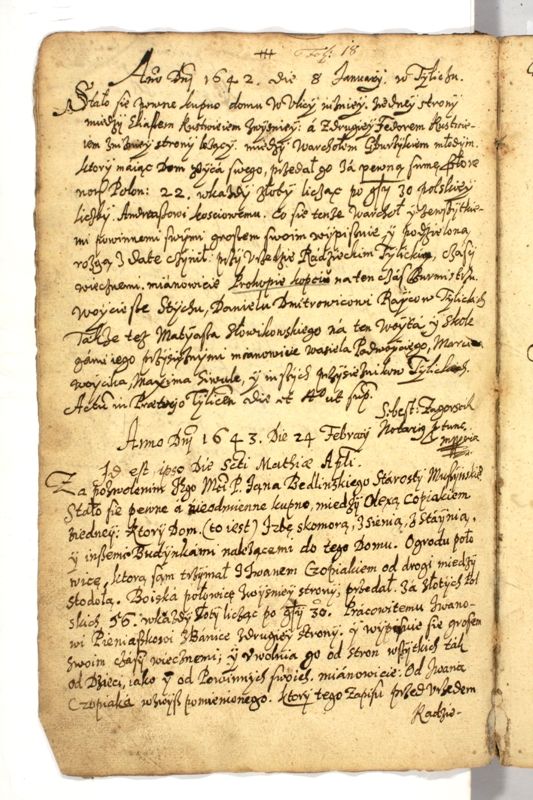 Fol: 18
Anno Dnj 1642. die 8 January. w Tyliczu.
Stało sie pewne kupno domu w Vlicy niżniey: zedney strony
miedzy Eliaszem Kustwiciem zwyżniey: á zdrugiey Fedorem Kustwi-
iem zniżniey strony leżący: miedzy Warchołem Gburczykiem młodym.
ktory maiąc Dom oyca swego, przedał go Zá pewną sumę Złote
Polon: 22. w każdy złoty licząc po gry 30 polskiey
liczby Andreaszowi kosciowemu. Co sie tenże Warchoł z
mi powinnemi swymi groszem swoim wypisuie y
date czynił. przy Vrzedzie Rádzieckim Tylickim, czásy
wiecznemi. mianowicie Prokopie kopciu na ten czás Burmistrzu.
Woyciesze Stychu, Danielu Dmitrowiconi Raycow Tylickich
Także też Matyasza Słowikowskiego ná ten Woytá y
iego przysiężnymi mianowicie Wasiela Podwoyciego,
Woycika, Maxyma Siwule, y inszych przysiężnikow Tylickich.
Actum in Prætorio Tylicen die et Ao ut sup.
Sebest:
Notarig tunc.
Anno Dnj 1643. Die 24 Febrary
Id est ipso Die Scti Mathiæ Apli.
Za pozwoleniem Jego Mći P. Jana Bedlinskiego Starosty Muszynskie
Stało sie pewne a nieodmienne kupno, miedzy Olexą Copiakiem
zedney: ktory Dom. (to iest) Izbę skomorą, z sienią, z Stáynią,
y inszemi Budynkami należącemi do tego Domu. Ogrodu poło
wicę, ktorą sąm trzymał z Iwanem Czopiakiem od drogi miedzy
Stodołą. Boiská połowicę zwyżniey strony: przedał. Zá złotych Pol
skich 56. w każdy złoty licząc po gry 30. Pracowitemu Iwano-
wi Pieniążkowi z Banice zdrugiey strony. y wypisuie sie groszem
swoim czásy wiecznemi; y vwolnia go od stron wszytkich ták
od Dzieci, iako y od Powinnych swoich, miánowicie: Od Iwana
Czopiaka wzwyss pomienionego. ktory tego Zapisu przed Vrzedem
Radzie-